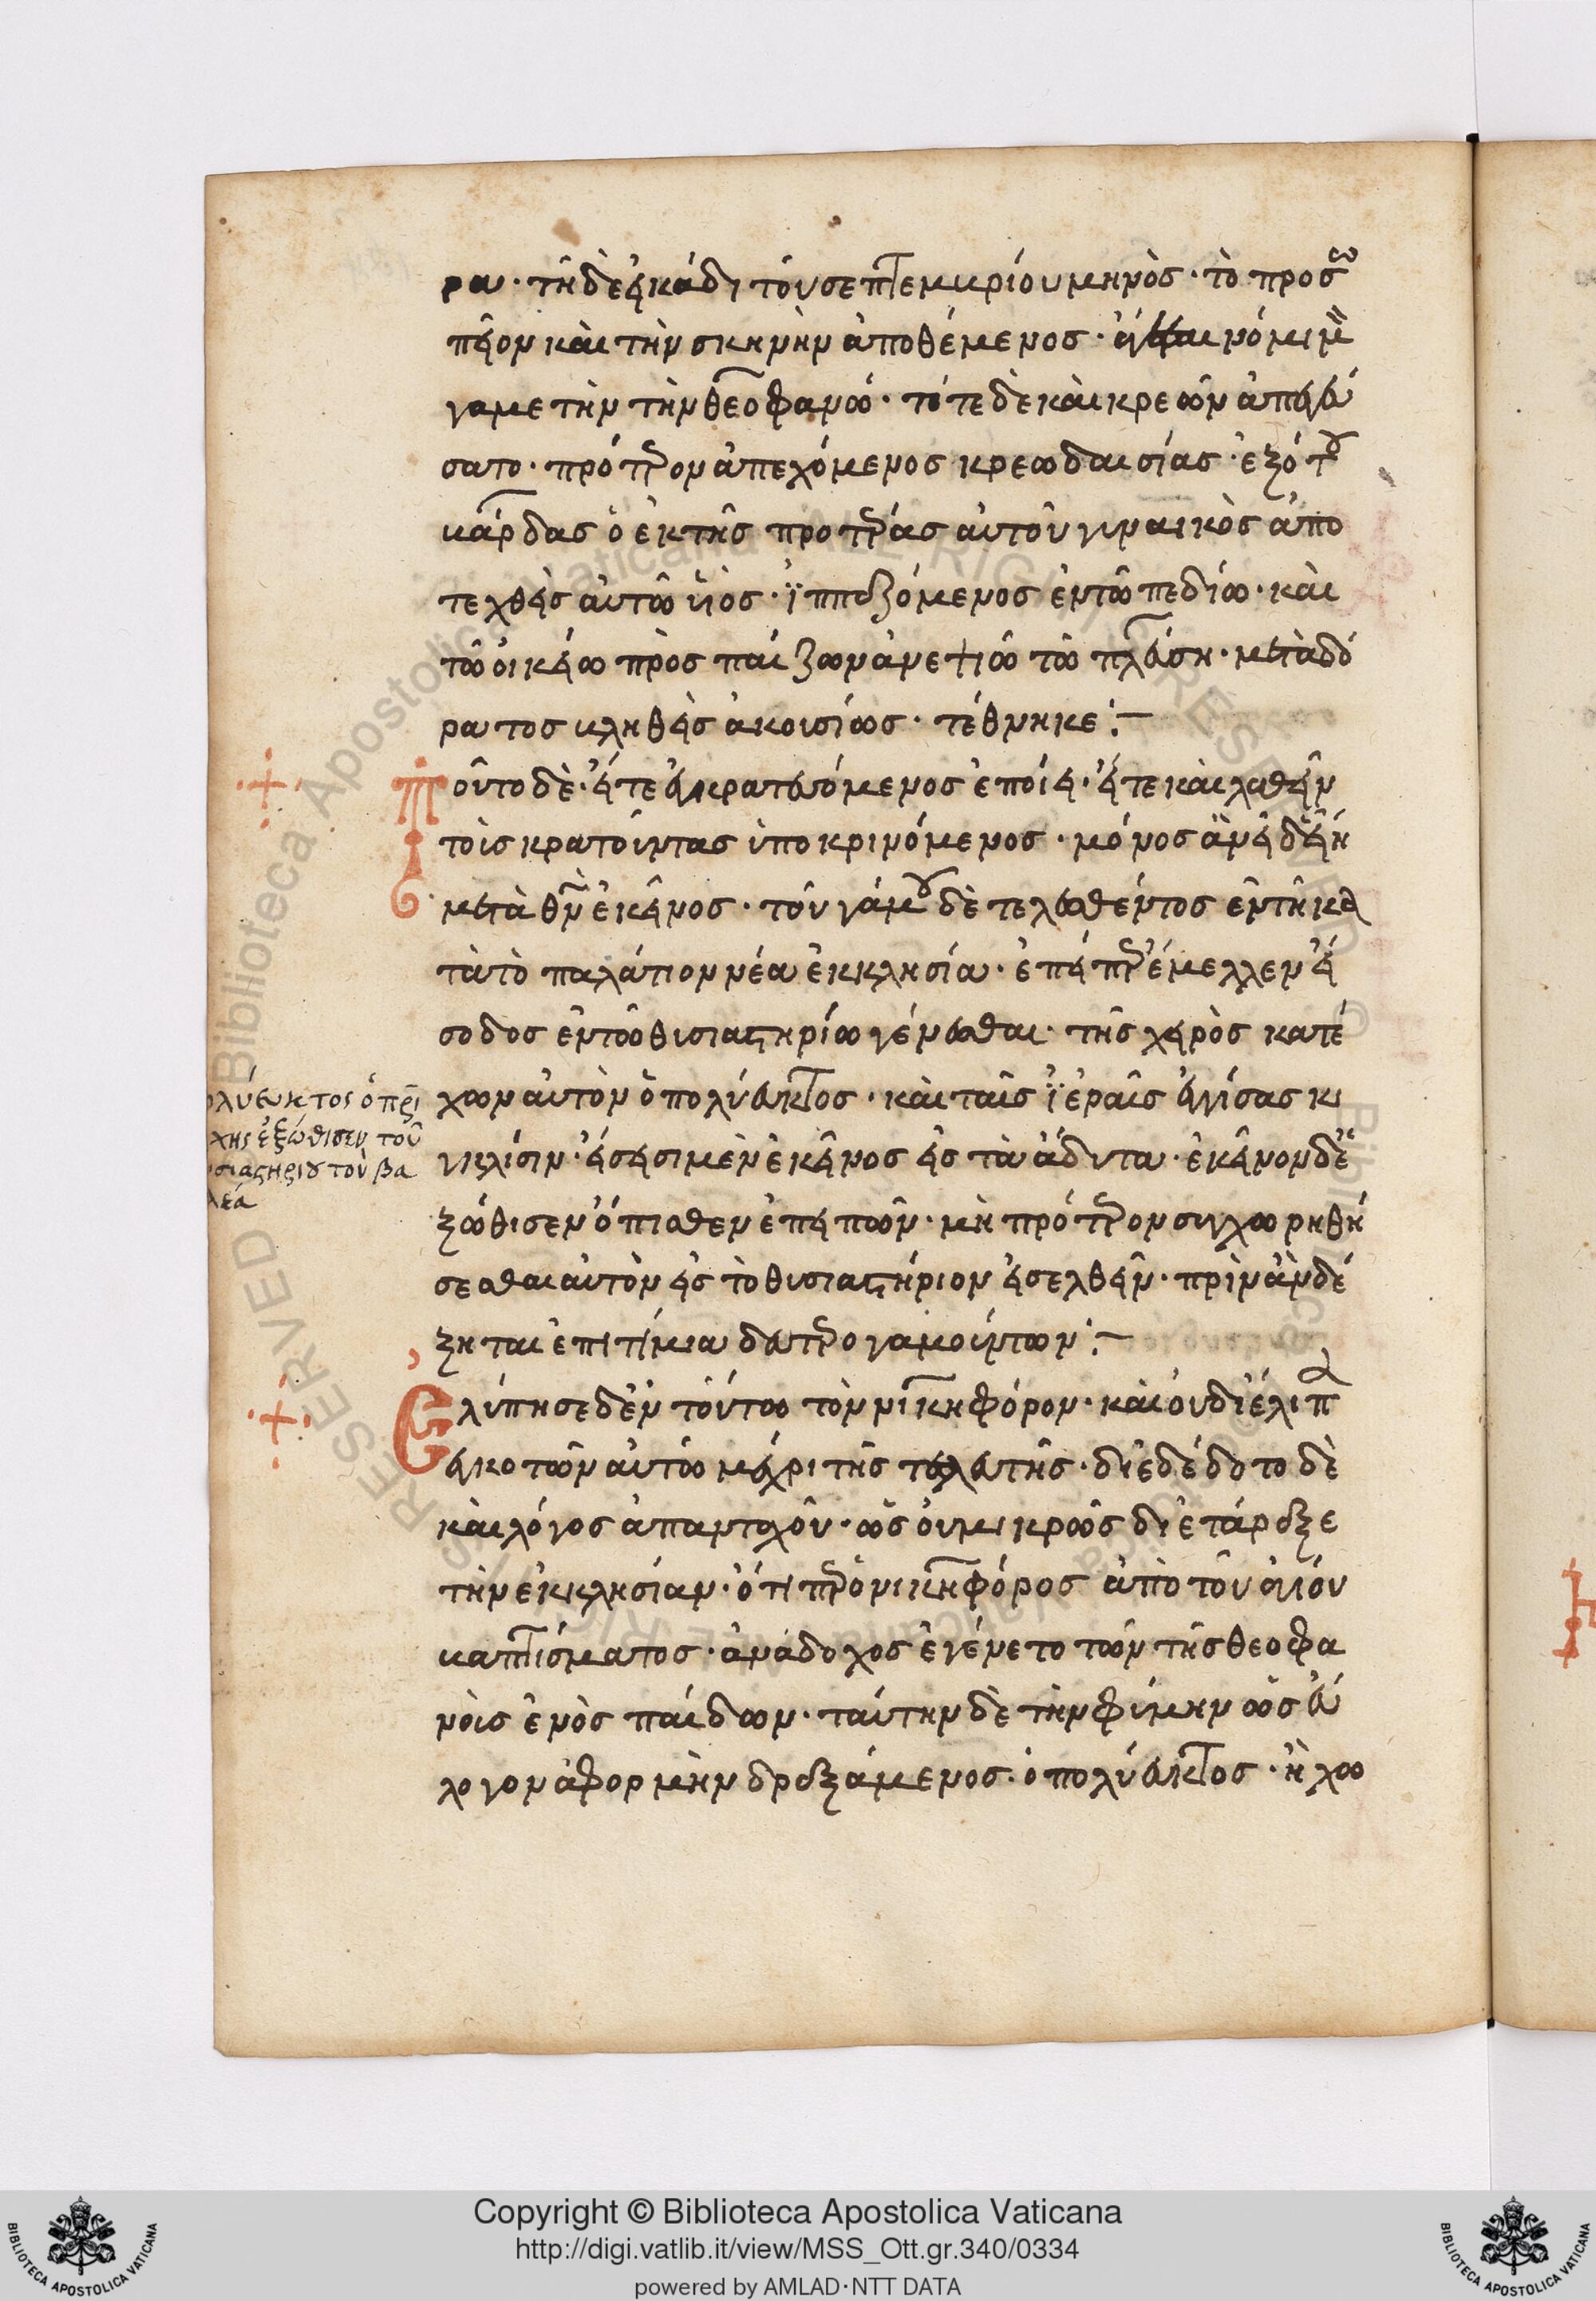 ρα· τῆ δὲ εἰκάδι τοῦ σεπτεμβρίου μηνὸς· τὸ προσω
πεῖον καὶ τὴν σκηνὴν ἀποθέμενος· νόμιμον
γαμετὴν τὴν θεοφανώ· τότε δὲ καὶ κρεῶν ἀπεγεύ
σατο· πρότερον ἀπεχόμενος κρεωδαισίας· ἐξότου
βάρδας ὁ ἐκ τῆς προτέρας αὐτοῦ γυναικὸς ἀπο
τεχθεὶς αὐτῶ υἱός· ϊππαζόμενος ἐν τῶ πεδίω· καὶ
τῶ οἰκείω προσπαίζων ἀνεψιῶ τῶ πλεύση· μετὰ δό
ρατος βληθεὶς ἀκουσίως· τέθνηκε:–
Τοῦτο δὲ· εἴτε ἐγκρατευόμενος ἐποίει· εἴτε καὶ λαθεῖν
τοὺς κρατοῦντας ὑποκρινόμενος· μόνος ἂν εἰδείη
μετὰ θν ἐκεῖνος· τοῦ γάμου δὲ τελεσθέντος ἐν τῆ κα
τὰ τὸ παλάτιον νέα ἐκκλησία· ἐπεί περ ἔμελλεν εἴ
σοδος ἐν τῶ θυσιαστηρίω γενέσθαι· τῆς χειρὸς κατέ
χων αὐτὸν ὁ πολύευκτος· καὶ ταῖς ϊεραῖς ἐγγίσας κι
γκλίσιν· εἴσεισι μὲν ἐκεῖνος εἰς τὰ ἄδυτα· ἐκεῖνον δὲ ἐ
ξώθησεν ὄπισθεν ἐπειπών· μὴ πρότερον συγχωρηθή
σεσθαι αὐτὸν εἰς τὸ θυσιαστήριον εἰσελθεῖν· πρὶν ἂν δέ
ξηται ἐπιτίμια δευτερογαμούντων:–
Ἐλύπησε δ' ἐν τούτω τὸν νικηφόρον· καὶ οὐ διέλιπε
ἐγκοτῶν αὐτῶ μέχρι τῆς τελευτῆς· διεδέδοτο δὲ
καὶ λόγος ἁπανταχοῦ· ὡς οὐ μικρῶς διετάραξε
τὴν ἐκκλησίαν· ὅτι περ ὁ νικηφόρος ἀπὸ τοῦ ἁγίου
βαπτίσματος· ἀνάδοχος ἐγένετο τῶν τῆς θεοφα
νοῦς ἑνὸς παίδων· ταύτην δὲ τὴν φήμην ὡς εὔ
λογον ἀφορμὴν δραξάμενος· ὁ πολύευκτος· ἢ χω
ολύευκτος ὁ πρι
χης ἐξώθισεν τοῦ
σιαστηρίου τὸν βα
λέα
Copyright © Biblioteca Apostolica Vaticana
http://digi.vatlib.it/view/MSS_Ott.gr.340/0334
powered by AMLAD·NTT DATA